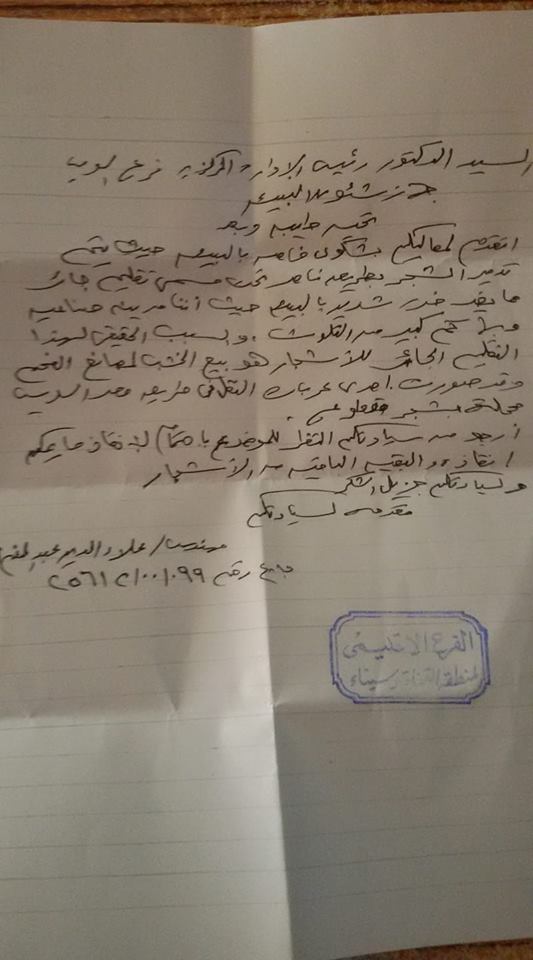 السيد الدكتور رئيس الادارة المركزية فرع السويس
جهاز شئون البيئة
تحية طيبة وبعد
اتقدم لمعاليكم بشكوى خاصة بالبيئة حيث يتم
تدمير الشجر بطريقة تحت مسمى تقليم جائر
مما يعد خطر شديد بالبيئة حيث أننا مدينة صناعية
وبها كم كبير من التلوث والسبب الحقيقى لهذا
التقليم الجائر للأشجار هو بيع الخشب لمصانع الفحم
وقد صورت احدى عربات النقل فى طريق مصر السويس
محملة بشجر مقطوع
أرجو من سيادتكم النظر للموضوع باهتمام لإنقاذ ما يمكن
انقاذه والبقية الباقية من الأشجار
ولسيادتكم جزيل الشكر
مقدمه لسيادتكم
مهندس/ علاء الدين عبد
رقم ٠١٠٠١٠٩٩
الفرع الاقليمى
لمنطقة القناة وسيناء